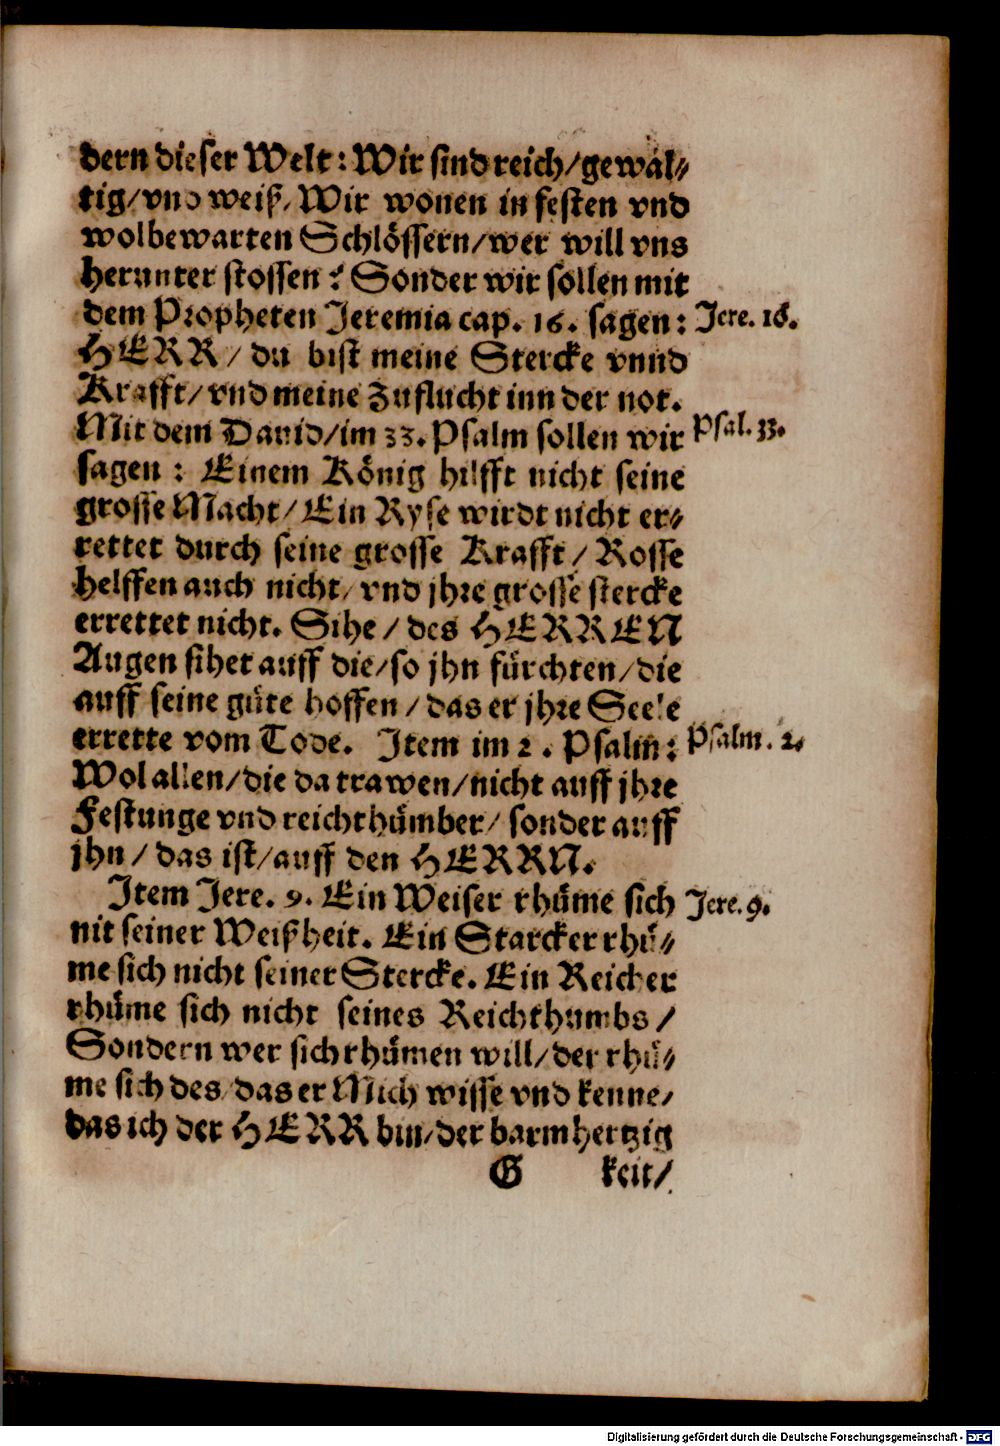 dern dieser Welt: Wir sind reich/gewäl⸗
tig/vnd weiß, Wir wonen in festen vnd
wolbewarten Schlössern/wer will vns
herunter stossen? Sonder wir sollen mit
dem Propheten Jeremia cap. 16. sagen: Jere. 16.
HERR/ du bist meine Stercke vnnd
Krafft/vnd meine Zuflucht inn der not.
Mit dem Dauid/im 33. Psalm sollen wir Psal. 33.
sagen: Einem König hilfft nicht seine
grosse Macht/Ein Ryse wirdt nicht er⸗
rettet durch seine grosse Krafft/Rosse
helffen auch nicht/ vnd jhre grosse stercke
errettet nicht. Sihe/des HERREN
Augen sihet auff die/so jhn fürchten/die
auff seine güte hoffen/das er jhre Seele
errette vom Tode. Item im 2. Psalm: Psalm. 2.
Wol allen/die da trawen/nicht auff jhre
Festunge vnd reichthümber/ sonder auff
jhn/das ist/auff den HERRN.
Item Jere. 9. Ein Weiser rhüme sich Jere. 9.
nit seiner Weißheit. Ein Starcker rhü⸗
me sich nicht seiner Stercke. Ein Reicher
rhüme sich nicht seines Reichthumbs/
Sondern wer sich rhümen will/der rhü⸗
me sich des/das er Mich wisse vnd kenne/
das ich der HERR bin/der barmhertzig
G keit/
Digitalisierung gefördert durch die Deutsche Forschungsgemeinschaft - DFG